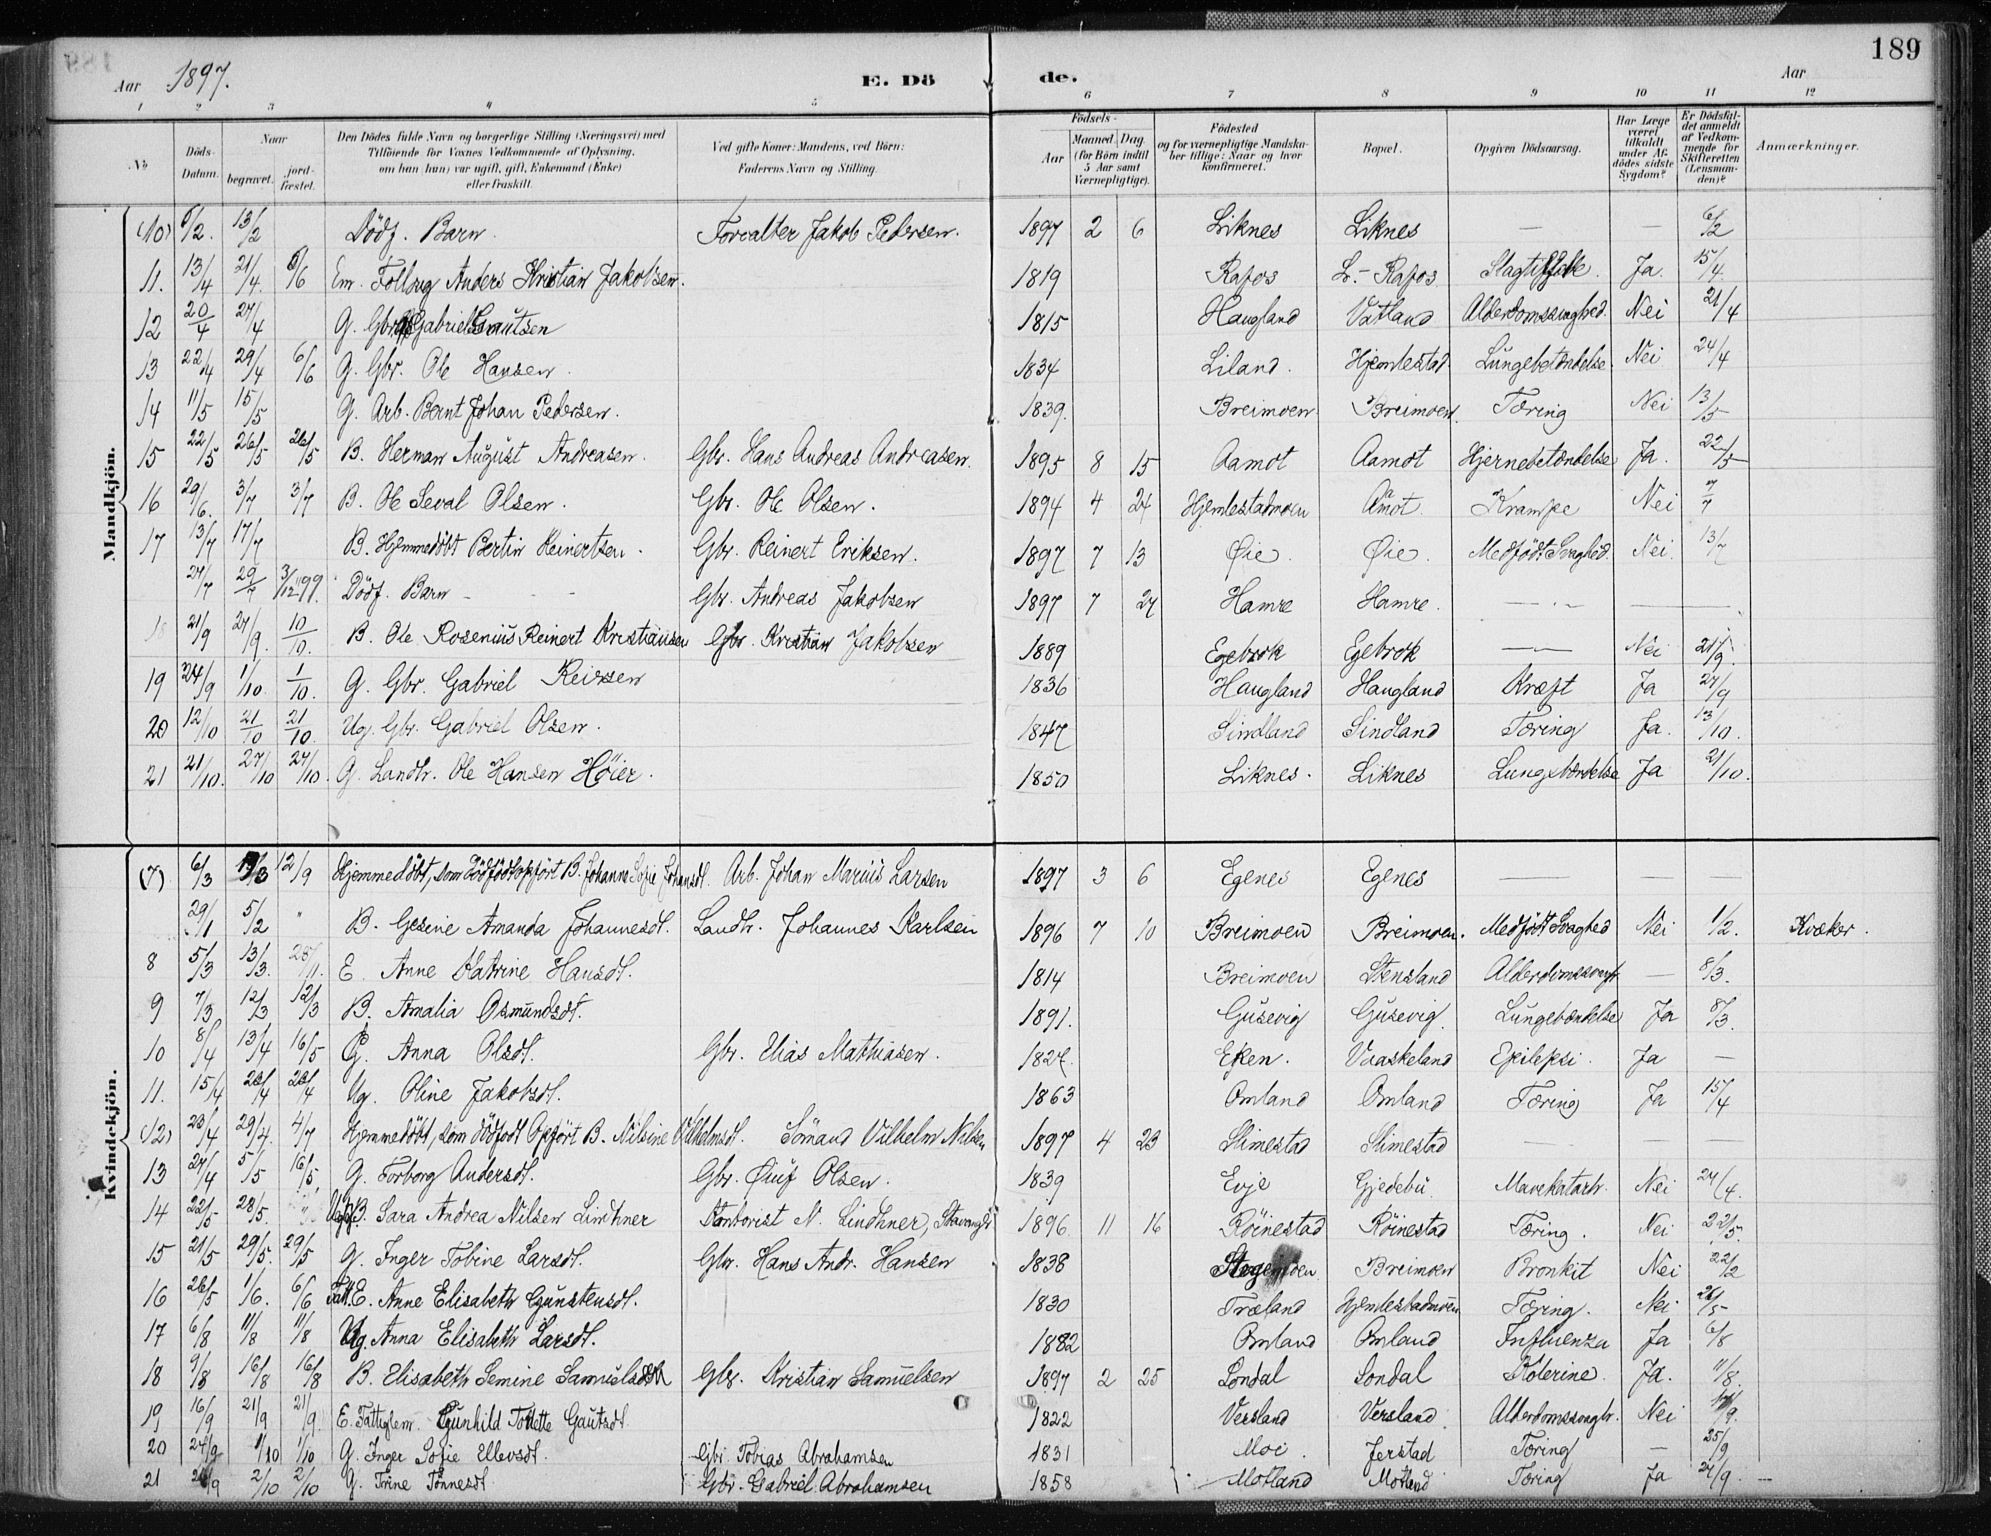 189
Aar 1897. E. Dö de. Aar
1 2 3 4 5 6 7 8 9 10 11 12
No Döds-Datum. Naar begravet. jord-fæstet. Den Dödes fulde Navn og borgerlige Stilling (Næringsvei) med Tilföiende for Voxnes Vedkommende af Oplysning, om han (hun) var ugift, gift, Enkemand (Enke) eller fraskilt. Ved gifte Koner: Mandens, ved Börn: Faderens Navn og Stilling. Födsels- Aar Maaned. Dag. (for Börn indtil 5 Aar samt Værnepligtige). Födested og for værnepligtige Mandska-ber tillige: Naar og hvor konfirmeret. Bopæl. Opgiven Dödsaarsag. Har Læge været tilkaldt under Af-dödes sidste Sygdom? Er Dödsfal-det anmeldt af Vedkom-mende for Skifteretten (Lensman-den)? Anmærkninger.
Mandkjön.
(10) 6/2. 13/2 Dödf. Barn. Forvalter Jakob Pedersen. 1897 2 6 Liknes Liknes — — 6/2
11. 13/4 21/4 6/6 Em. Follaug Anders Kristian Jakobsen. 1819 Rafos L.- Rafos Ja. 15/4
12 20/4 27/4 G. Gbr. Gabriel 1815 Haugland Vatland Alderdomssvaghed. Nei 21/4
13 22/4 29/4 6/6 G. Gbr. Ole Hansen. 1834 Liland. Hjemlestad Lungebetændelse. Nei 24/4
14 11/5 15/5 G. Arb. Bernt Johan Pedersen. 1839. Breimoen Breimoen. Tæring Nei 13/5
15 22/5 26/5 26/5 B. Herman August Andreasen. Gbr. Hans Andreas Andreasen. 1895 8 15 Aamot Aamot Hjernebetændelse Ja. 22/5
16 29/6. 3/7 3/7 B. Ole Seval Olsen. Gbr. Ole Olsen. 1894 4 24 Hjemlestadmoen Åmot Krampe Nei 7/7
17 13/7 17/7 B. Hjemmedöbt Bertin Reinertsen. Gbr. Reinert Eriksen. 1897 7 13 Øie. Øie. Medfödt Svaghed. Nei. 13/7
27/7 29/7 3/12 99. Dödf. Barn - - Gbr. Andreas Jakobsen 1897 7 27 Hamre Hamre. — —
18 21/9 27/9. 10/10. B. Ole Rosenius Reinert Kristiansen Gbr. Kristian Jakobsen 1889 Egebrok Egebrok — Nei 21/9.
19 24/9 1/10 1/10. G. Gbr. Gabriel Reiersen 1836 Haugland Haugland Kræft Ja 27/9
20 12/10 21/10 21/10. Ug. Gbr. Gabriel Olsen. 1847 Sindland Sindland Tæring Ja. 13/10.
21 21/10. 27/10 27/10. G. Landh. Ole Hansen Höier. 1850 Liknes. Liknes Lungebændelse Ja 21/10.
Kvindekjön.
(7) 6/3 13/3 12/9 Hjemmedöbt, som Dödfödt opfört B. Johanne Sofie Johansdt. Arb. Johan Marius Larsen 1897 3 6 Egenes Egenes — — —
29/1 5/2 " B. Gesine Amanda Johannesdt. Landh. Johannes Karlsen 1896 7 10 Breimoen Breimoen. Medfödt Svaghed Nei 1/2. Kvæker.
8 5/3 13/3. 28/11. E. Anne Katrine Hansdt. 1814 Breimoen Stensland — 8/3.
9 7/3 12/3 12/3 B. Amalia Osmundsdt. 1891. Gusevig Gusevig Lungebændelse Ja 8/3.
10 8/4 13/4 16/5 G. Anna Olsdt. Gbr. Elias Mathiasen. 1827. Eken. Vraaskeland Epilepsi. Ja —
11. 15/4 20/4 20/4 Ug. Oline Jakobsdt. 1863 Omland Omland Tæring Ja 15/4
(12) 23/4 29/4. 4/7 Hjemmedöbt, som dödfödt Opfört B. Nilsine Vilhelmsdt. Sömand Vilhelm Nilsen 1897 4 23 Slimestad Slimestad — —
13 27/4 5/5 16/5. G. Torborg Andersdt. Gbr. Øiuf Olsen. 1839 Evje Gjedebu Mavekatarh. Nei 27/4.
14 22/5 28/5. B. Sara Andrea Nilsen Lindhner Kontorist N. Lindhner, Stavanger 1896 11 16 Röinestad Röinestad Tæring. Nei 22/5.
15 21/5 29/5. 29/5 G. Inger Tobine Larsdt. Gbr. Hans Andr. Hansen 1838 Breimoen Bronkit Nei 22/2
16 26/5 1/6. 6/6 Fatt. E. Anne Elisabeth Gunstensdt. 1830 Træland Hjemlestadmoen Tæring. Nei 26/5
17 6/8 11/8 11/8 Ug. Anna Elisabeth Larsdt. 1882 Omland Omland Influenza Ja 6/8
18 9/8 16/8 16/8 B. Elisabeth Semine Samuelsdt Gbr. Kristian Samuelsen 1897 2 25 Londal Londal Kolerine. Ja. 11/8.
19 16/9 21/9 21/9. E. Fattiglem. Gunhild Todette Gautsdt. 1822 Versland Versland Nei 17/9.
20 24/9 1/10 1/10 G. Inger Sofie Ellevsdt. Gbr. Tobias Abrahamsen 1831 Moi. Jerstad Tæring — 25/9
21 26/9 2/10 2/10 G. Trine Tönnesdt. Gbr. Gabriel Abrahamsen 1858 Motland Motland Tæring Ja 27/9. —